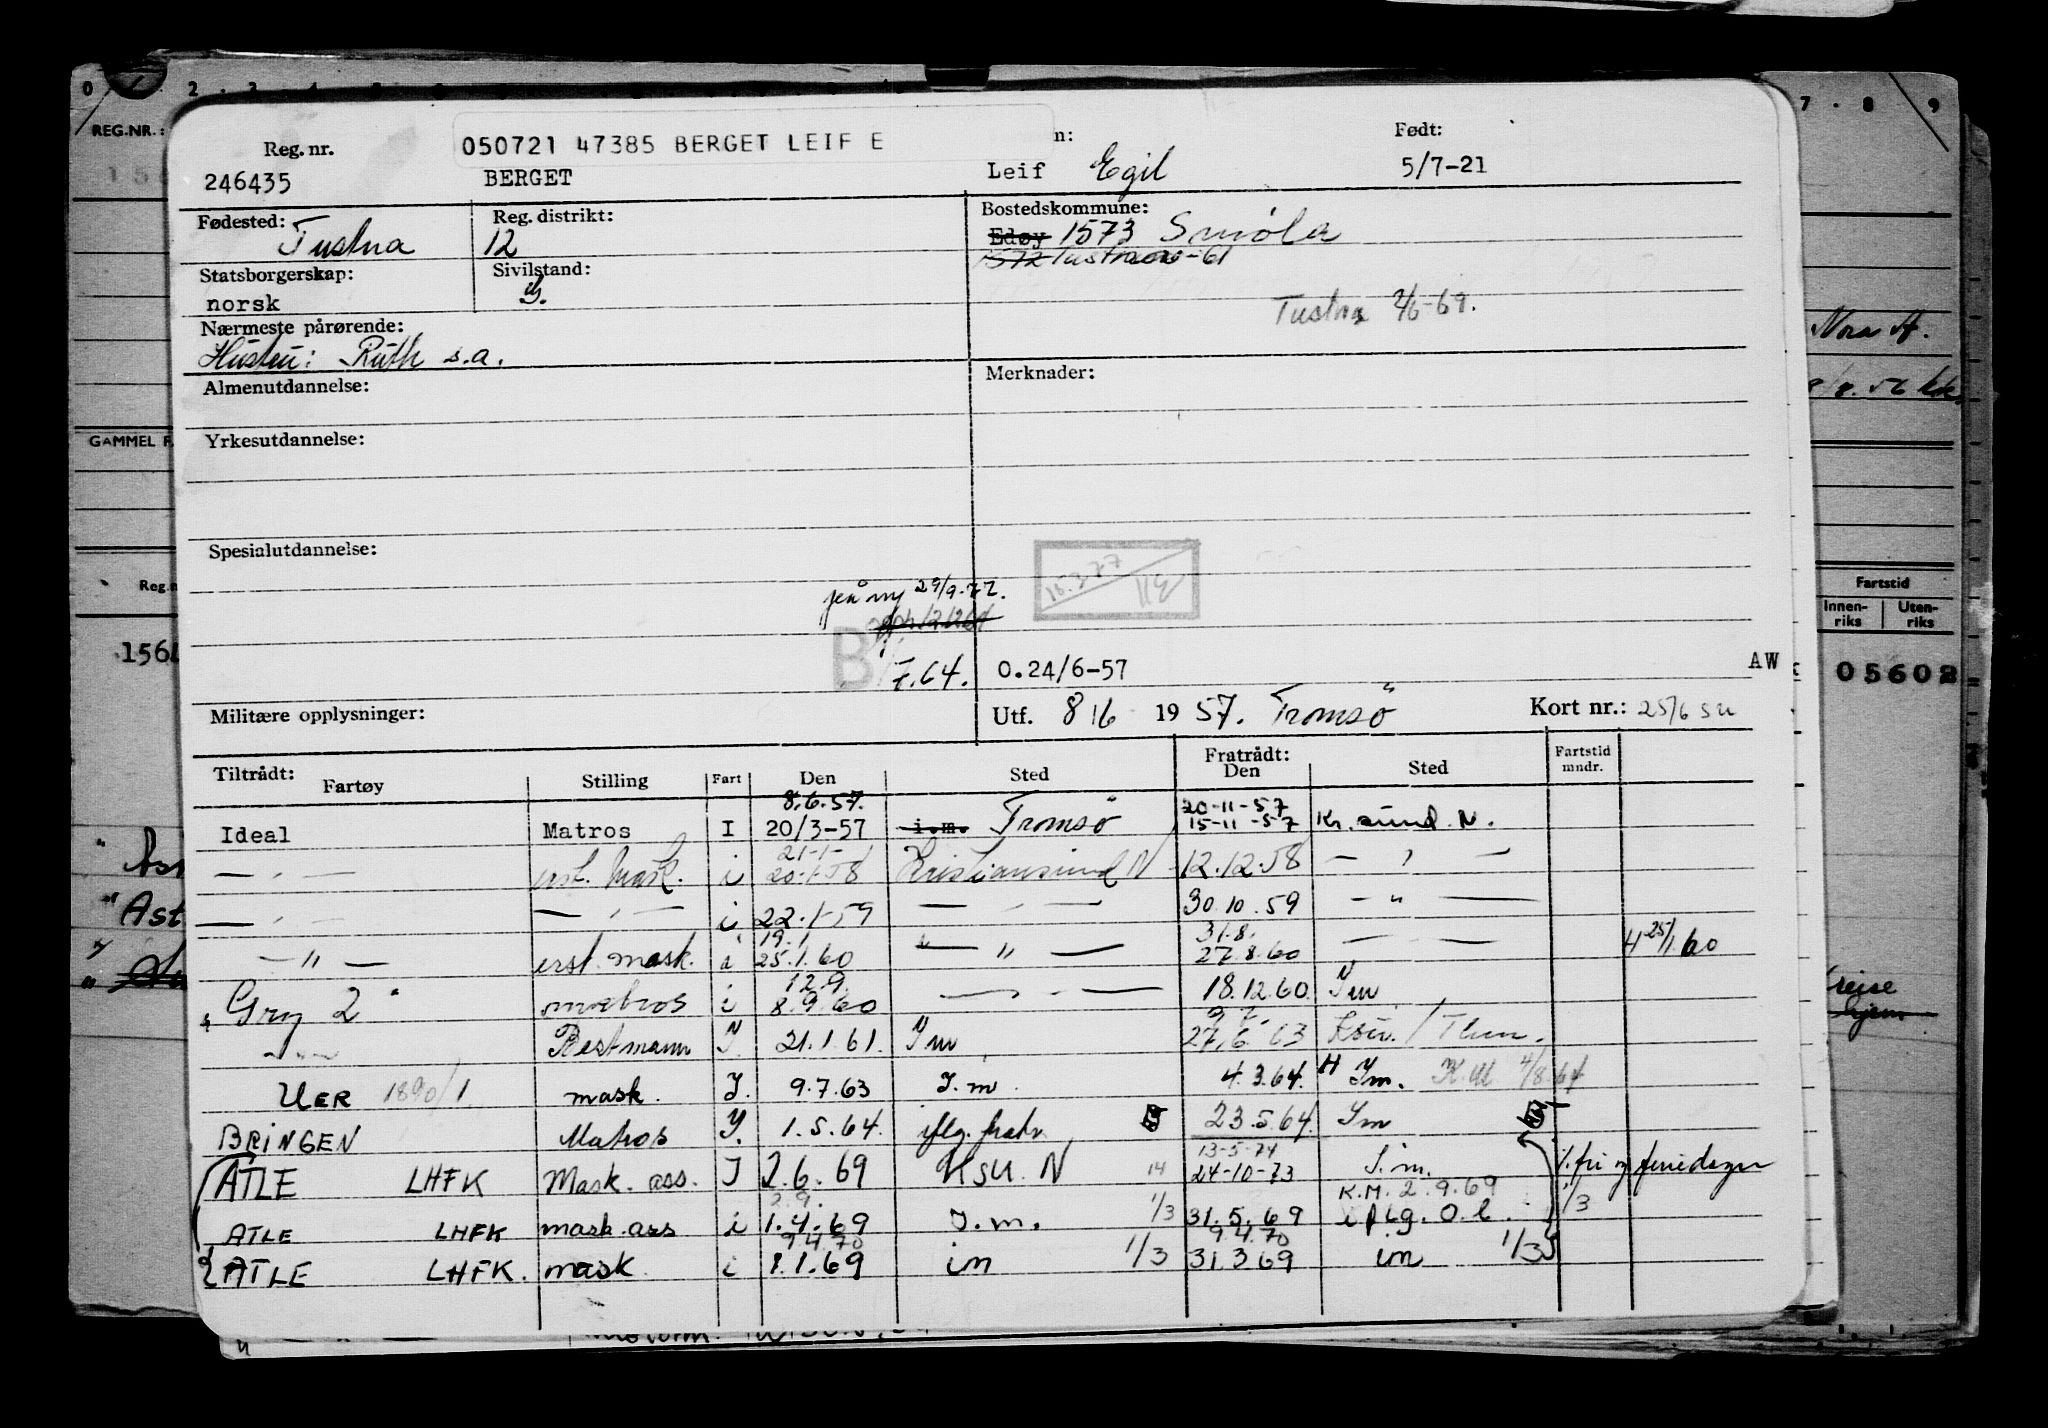 0 1 2 3 4
7 . 8 9
REG.NR.:
050721 47385 BERGET LEIF E
n:
Født:
Reg. nr.
246435 BERGET
Leif Egil 5/7-21
Fødested: Tustna
Reg. distrikt: 12
Bostedskommune:
Edøy 1573 Smøla
1572 Tustna -61
Statsborgerskap: norsk
Sivilstand: g.
Tustna 2/6-69.
Nærmeste pårørende:
Hustru: Ruth s.a.
Nora A.
Almenutdannelse:
Merknader:
Yrkesutdannelse:
GAMMEL F
Spesialutdannelse:
15.3.77
29/9.77.
B
7.64.
0.24/6-57
AW
Reg.n
Fartstid
Innen-riks Uten-riks
156
05602
Militære opplysninger:
Utf. 8/6 1957. Tromsö
Kort nr.: 25/6 su
Tiltrådt:
Fratrådt:
Fartøy Stilling Fart Den Sted Den Sted Fartstid mndr.
8.6.57. 20-11-57
Ideal Matros I 20/3-57 i.m. Tromsö 15-11-57 Kr.sund. N.
21-1-
— " — erst. mask. i 20.1.58 Kristiansund N 12.12.58 — " —
— " — — " — i 22.1-59 — " — 30.10.59 — " —
19.1 31.8.
— " — erst. mask. i 25.1.60 — " — 27.8.60 — — 4 25/1.60
12.9.
" Gry 2 " matros i 8.9.60 — " — 18.12.60. Im
9.7.
— " — Bestmann I. 21.1.61. Im 27.6.63 Ksu. / Thm.
UER 1890/1 mask. I. 9.7.63 I.m. 4.3.64. H Im. K.M 4/8 64
BRINGEN Matros I. 1.5.64. iflg. fratr 23.5.64. Im
13-5-74
ATLE LHFK Mask. ass. I 2.6.69 KSU. N 14 24-10-73 I.m. fri og feriedager
2.9. K.M. 2.9.69
ATLE LHFK mask ass i 1.4.69 I.m. 1/3 31.5.69 iflg. O.l. 1/3
9.4.70 9.4.70
ATLE LHFK. mask i 1.1.69 im 1/3 31.3.69 im 1/3
reise
hjem